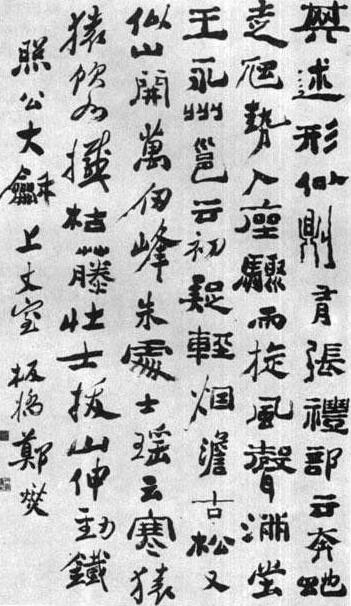 其述形似則有張禮部云奔虵
走虺勢入座驟雨旋風聲滿堂
王永州邕云初疑輕烟澹古松又
似山開萬仞峰朱處士瑤云寒猿
猿飲水撼枯藤壯士拔山伸勁鐵
公大龢上丈室 板橋鄭燮